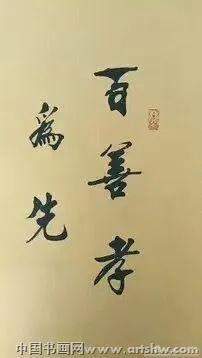 百善孝
為先
中国书画网 www.artshw.com